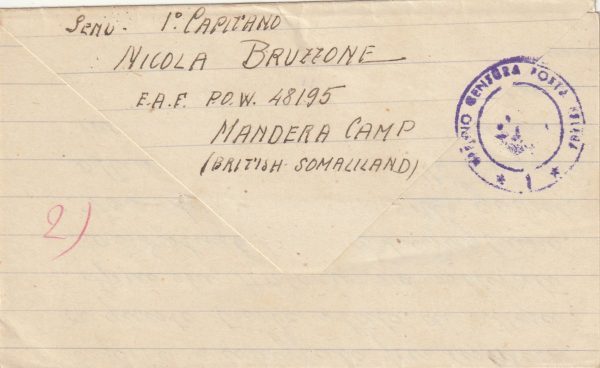 1º CAPITANO
NICOLA BRUZZONE
E.A.F. P.O.W. 48195
MANDERA CAMP
(BRITISH SOMALILAND)
CENSURA POSTA
* 1 *
2)